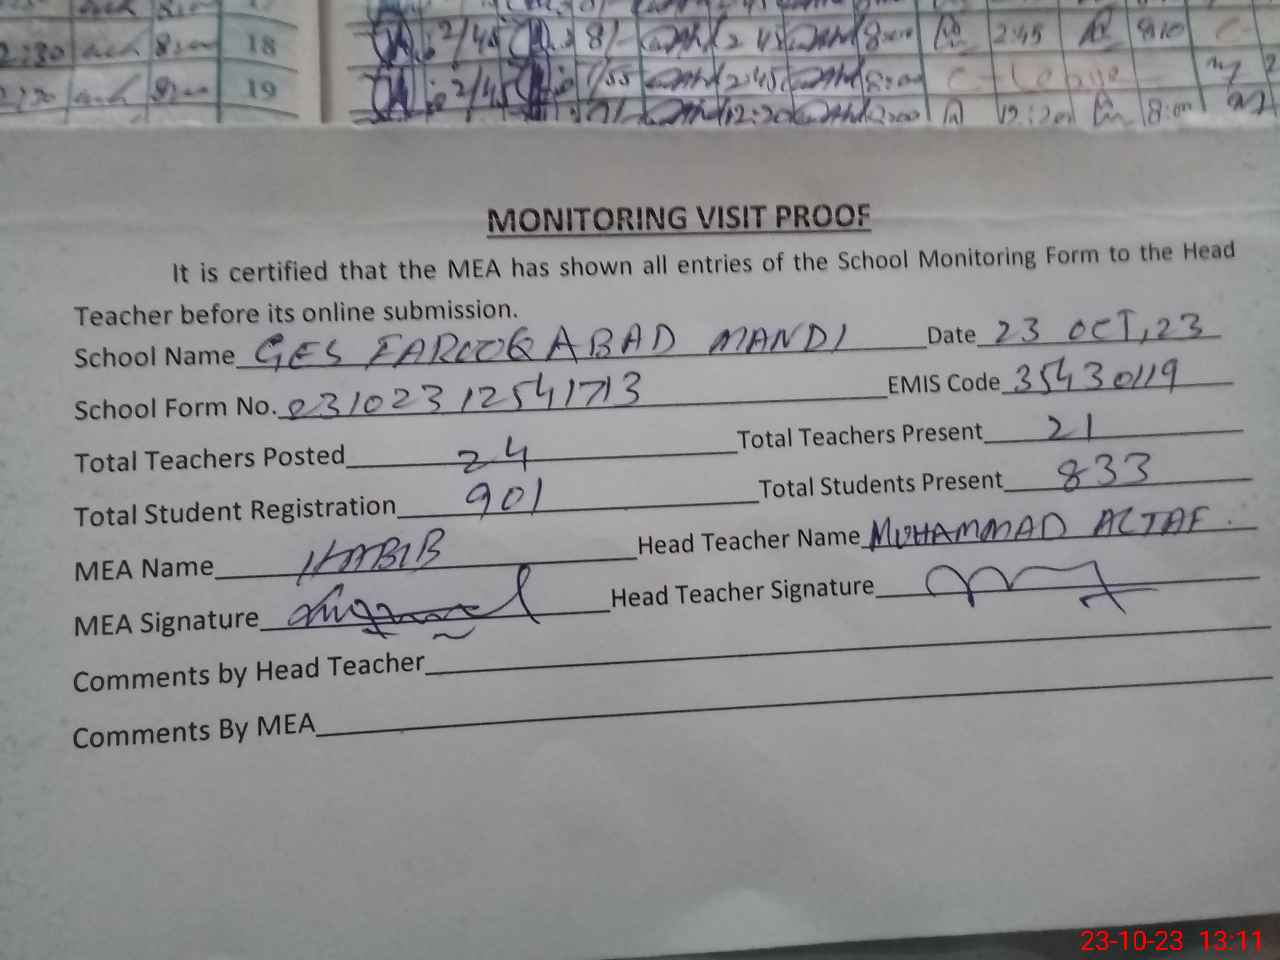 2:30 8:00 18 2/45 8/- 2 45 8:00 2:45 8:10 C-
19 2/45 7/55 2:45 8:00 C-Leave
12:20 8:00 12:20 8:00
MONITORING VISIT PROOF
It is certified that the MEA has shown all entries of the School Monitoring Form to the Head
Teacher before its online submission.
School Name GES FAROOQABAD MANDI Date 23 OCT, 23
School Form No. 0310231254 1713 EMIS Code 35430119
Total Teachers Posted 24 Total Teachers Present 21
Total Student Registration 901 Total Students Present 833
MEA Name HABIB Head Teacher Name MUHAMMAD ALTAF.
MEA Signature Head Teacher Signature
Comments by Head Teacher
Comments By MEA
23-10-23 13:11